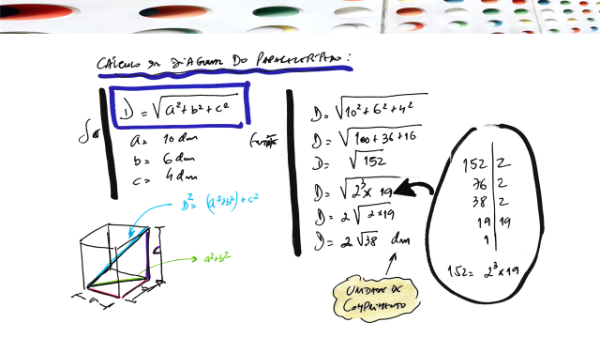 CÁLCULO DA DIAGONAL DO PARALELEPÍPEDO:
D = √a²+b²+c²
Se
a = 10 dm
b = 6 dm
c = 4 dm
D² = (a²+b²)+c²
a²+b²
c
a
b
D = √10²+6²+4²
D = √100+36+16
D = √152
D = √2³×19
D = 2√2×19
D = 2√38 dm
UNIDADE DE
COMPRIMENTO
152 | 2
76 | 2
38 | 2
19 | 19
1
152 = 2³×19